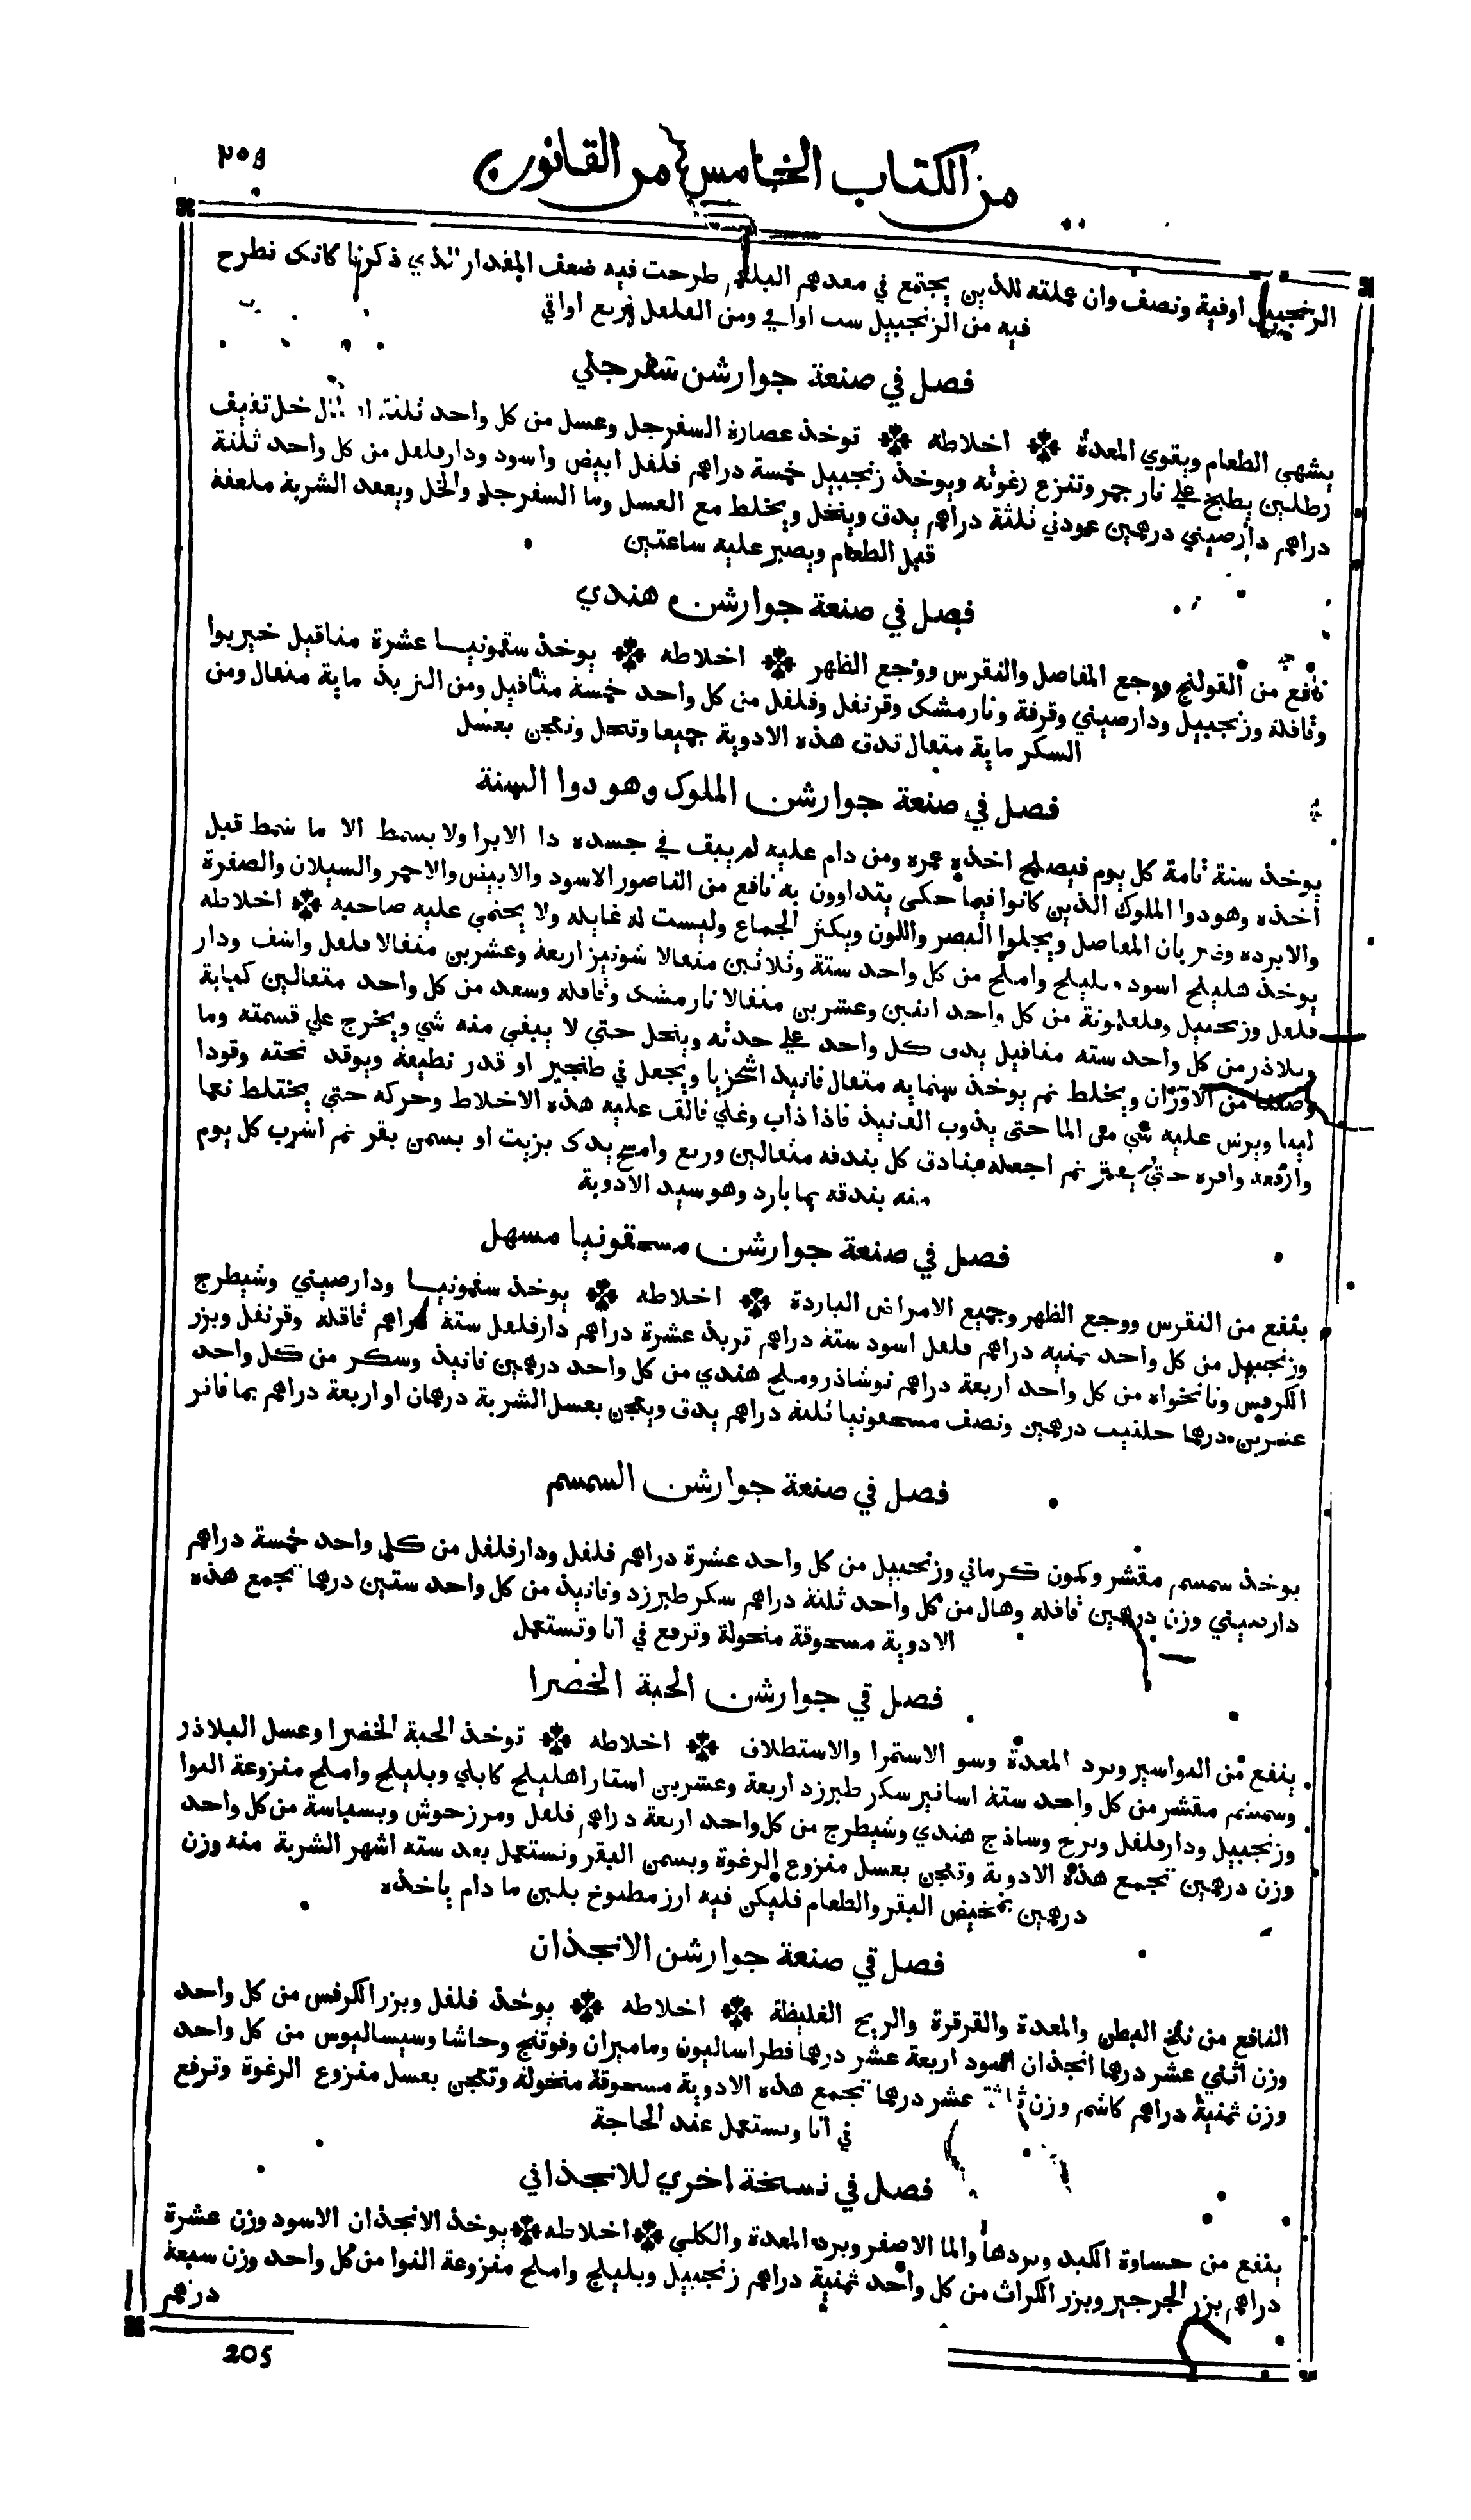 من الكتاب الخامس من القانون
٢٠٥
الزنجبيل اوقية ونصف وان عملته للذين يجتمع في معدهم البلغم طرحت فيه ضعف المقدار الذي ذكرنا كانك تطرح
فيه من الزنجبيل ست اواقي ومن الفلفل اربع اواقي
فصل في صنعة جوارشن سفرجلي
يشهي الطعام ويقوي المعدة اخلاطه توخذ عصارة السفرجل وعسل من كل واحد ثلثة ارطال خل ثقيف
رطلين يطبخ علي نار جمر وتنزع رغوته ويوخذ زنجبيل خمسة دراهم فلفل ابيض واسود ودارفلفل من كل واحد ثلثة
دراهم دارصيني درهمين عودني ثلثة دراهم يدق وينخل ويخلط مع العسل وما السفرجل والخل ويعقد الشربة ملعقة
قبل الطعام ويصبر عليه ساعتين
فصل في صنعة جوارشن هندي
نافع من القولنج ووجع المفاصل والنقرس ووجع الظهر اخلاطه يوخذ سقمونيا عشرة مثاقيل خيربوا
وقاقلة وزنجبيل ودارصيني وقرفة ونارمشك وقرنفل وفلفل من كل واحد خمسة مثاقيل ومن التربد ماية مثقال ومن
السكر ماية مثقال تدق هذه الادوية جميعا وتنخل وتعجن بعسل
فصل في صنعة جوارشن الملوك وهو دوا السنة
يوخذ سنة تامة كل يوم فيصلح اخذه عمره ومن دام عليه لم يبق في جسده دا الا برا ولا يشمط الا ما شمط قبل
اخذه وهو دوا الملوك الذين كانوا فيما حكي يتداوون به نافع من الناصور الاسود والابيض والاحمر والسيلان والصفرة
والابرده وضربان المفاصل ويجلوا البصر واللون ويكثر الجماع وليست له غايله ولا يحتمي عليه صاحبه اخلاطه
يوخذ هليلج اسود وبليلج واملج من كل واحد ستة وثلاثين مثقالا شونيز اربعة وعشرين مثقالا فلفل واشف ودار
فلفل وزنجبيل وفلفلمونة من كل واحد اثنين وعشرين مثقالا نارمشك وقاقله وسعد من كل واحد مثقالين كبابة
وبلاذر من كل واحد سته مثاقيل يدق كل واحد علي حدته وينخل حتي لا يبقي منه شي ويخرج علي قسمته وما
وصفنا من الاوزان ويخلط ثم يوخذ ستمايه مثقال فانيد اشحريا ويجعل في طنجير او قدر نظيفة ويوقد تحته وقودا
لينا ويرش عليه شي من الما حتي يذوب الفنيد فاذا ذاب وغلي فالق عليه هذه الاخلاط وحركه حتي يختلط نعما
وارفعه واقره حتي يفتر ثم اجعله بنادق كل بندقه مثقالين وربع وامسح يدك بزيت او بسمن بقر ثم اشرب كل يوم
منه بندقه بما بارد وهو سيد الادوية
فصل في صنعة جوارشن مسحقونيا مسهل
ينفع من النقرس ووجع الظهر وجميع الامراض الباردة اخلاطه يوخذ سقمونيا ودارصيني وشيطرج
وزنجبيل من كل واحد ثمنيه دراهم فلفل اسود ستة دراهم تربد عشرة دراهم دارفلفل ستة دراهم قاقله وقرنفل وبزر
الكرفس ونانخواه من كل واحد اربعة دراهم نوشاذر وملح هندي من كل واحد درهمين فانيذ وسكر من كل واحد
عشرين درهما حلتيت درهمين ونصف مسحقونيا ثلثة دراهم يدق ويعجن بعسل الشربة درهمان او اربعة دراهم بما فاتر
فصل في صنعة جوارشن السمسم
يوخذ سمسم مقشر وكمون كرماني وزنجبيل من كل واحد عشرة دراهم فلفل ودارفلفل من كل واحد خمسة دراهم
دارصيني وزن درهمين قاقله وهال من كل واحد ثلثة دراهم سكر طبرزد وفانيذ من كل واحد ستين درهما تجمع هذه
الادوية مسحوقة منخولة وترفع في انا وتستعمل
فصل في جوارشن الحبة الخضرا
ينفع من البواسير وبرد المعدة وسو الاستمرا والاستطلاق اخلاطه توخذ الحبة الخضرا وعسل البلاذر
وسمسم مقشر من كل واحد ستة اساتير سكر طبرزد اربعة وعشرين استارا هليلج كابلي وبليلج واملج منزوعة النوا
وزنجبيل ودارفلفل وبرنج وساذج هندي وشيطرج من كل واحد اربعة دراهم فلفل ومرزحوش وبسباسة من كل واحد
وزن درهمين تجمع هذه الادوية وتعجن بعسل منزوع الرغوة وبسمن البقر وتستعمل بعد سته اشهر الشربة منه وزن
درهمين بمخيض البقر والطعام فليكن فيه ارز مطبوخ بلبن ما دام ياخذه
فصل في صنعة جوارشن الانجذان
النافع من نفخ البطن والمعدة والقرقرة والريح الغليظة اخلاطه يوخذ فلفل وبزر الكرفس من كل واحد
وزن اثني عشر درهما انجذان اسود اربعة عشر درهما فطراساليون وماميران وفوتنج وحاشا وسيساليوس من كل واحد
وزن ثمنية دراهم كاشم وزن ثلثة عشر درهما تجمع هذه الادوية مسحوقة منخولة وتعجن بعسل منزوع الرغوة وترفع
في انا وتستعمل عند الحاجة
فصل في نسخة اخري للانجذاني
ينفع من حساوة الكبد وبردها والما الاصفر وبرد المعدة والكلي اخلاطه يوخذ الانجذان الاسود وزن عشرة
دراهم بزر الجرجير وبزر الكراث من كل واحد ثمنية دراهم زنجبيل وبليلج واملج منزوعة النوا من كل واحد وزن سبعة
درهم
205